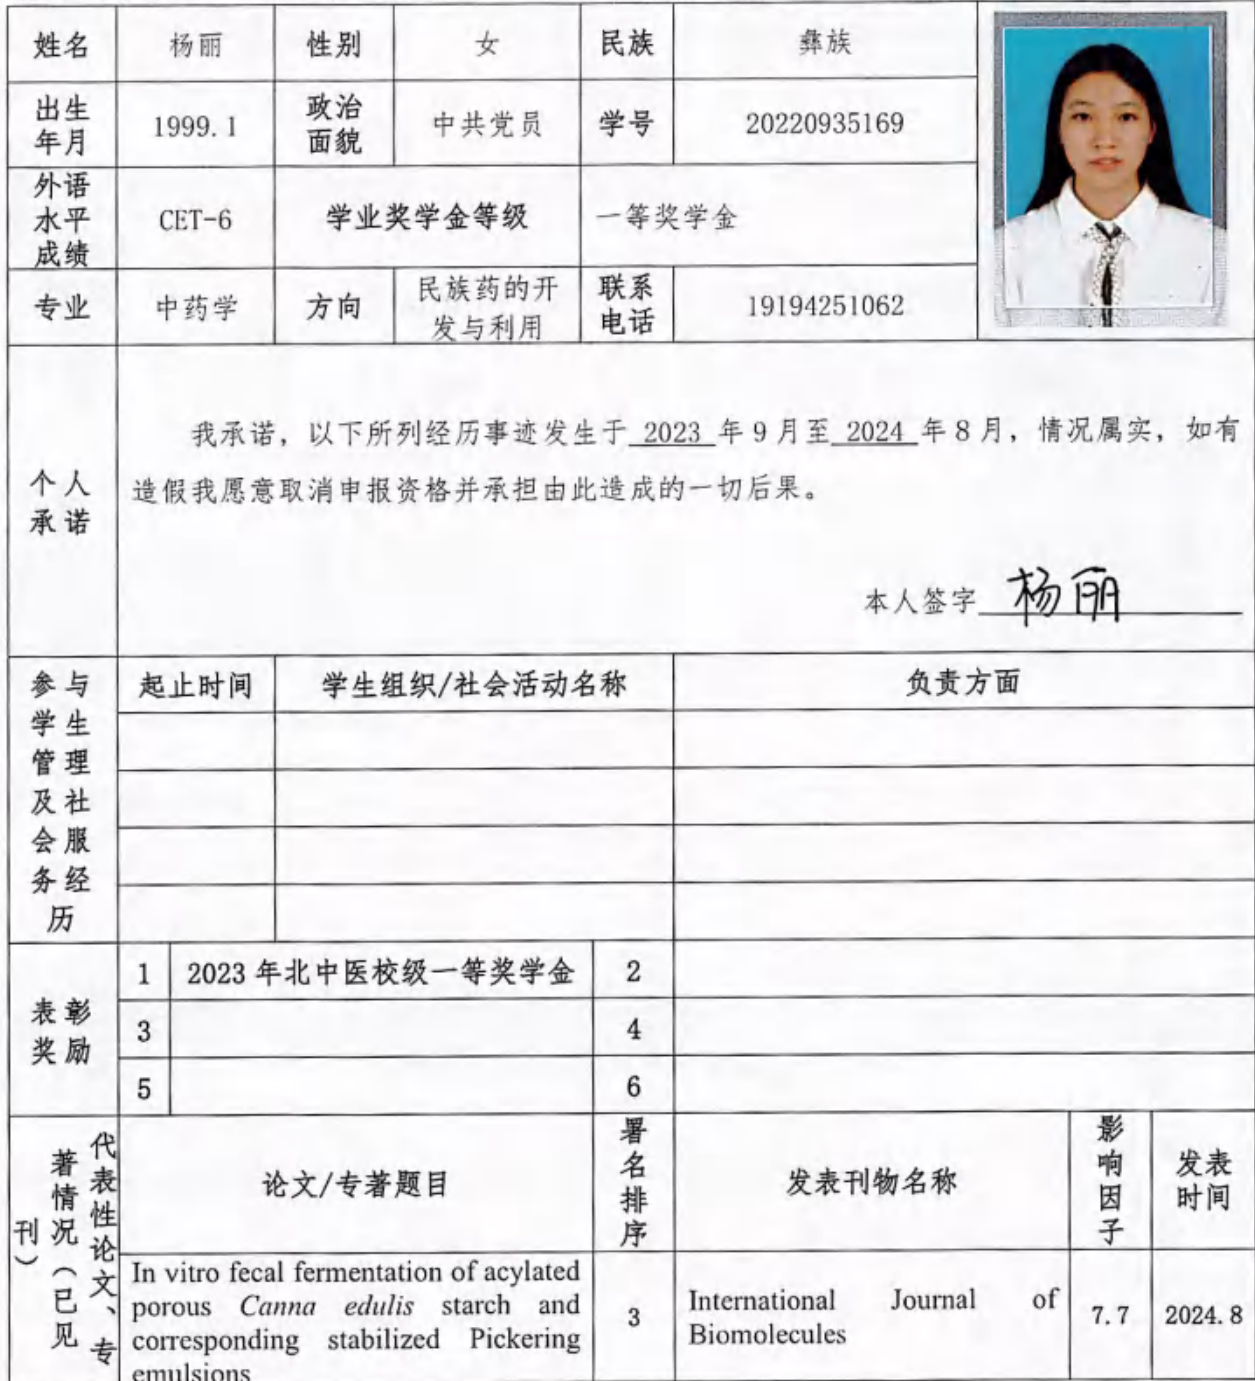 姓名 杨丽 性别 女 民族 彝族
出生年月 1999.1 政治面貌 中共党员 学号 20220935169
外语水平成绩 CET-6 学业奖学金等级 一等奖学金
专业 中药学 方向 民族药的开发与利用 联系电话 19194251062
个人承诺
我承诺，以下所列经历事迹发生于 2023 年 9 月至 2024 年 8 月，情况属实，如有
造假我愿意取消申报资格并承担由此造成的一切后果。
本人签字 杨丽
参与学生管理及社会服务经历
起止时间 学生组织/社会活动名称 负责方面
表彰奖励
1 2023 年北中医校级一等奖学金 2
3 4
5 6
代表性论文、专著情况（已见刊）
论文/专著题目 署名排序 发表刊物名称 影响因子 发表时间
In vitro fecal fermentation of acylated
porous Canna edulis starch and
corresponding stabilized Pickering
emulsions
3
International Journal of
Biomolecules
7.7
2024.8